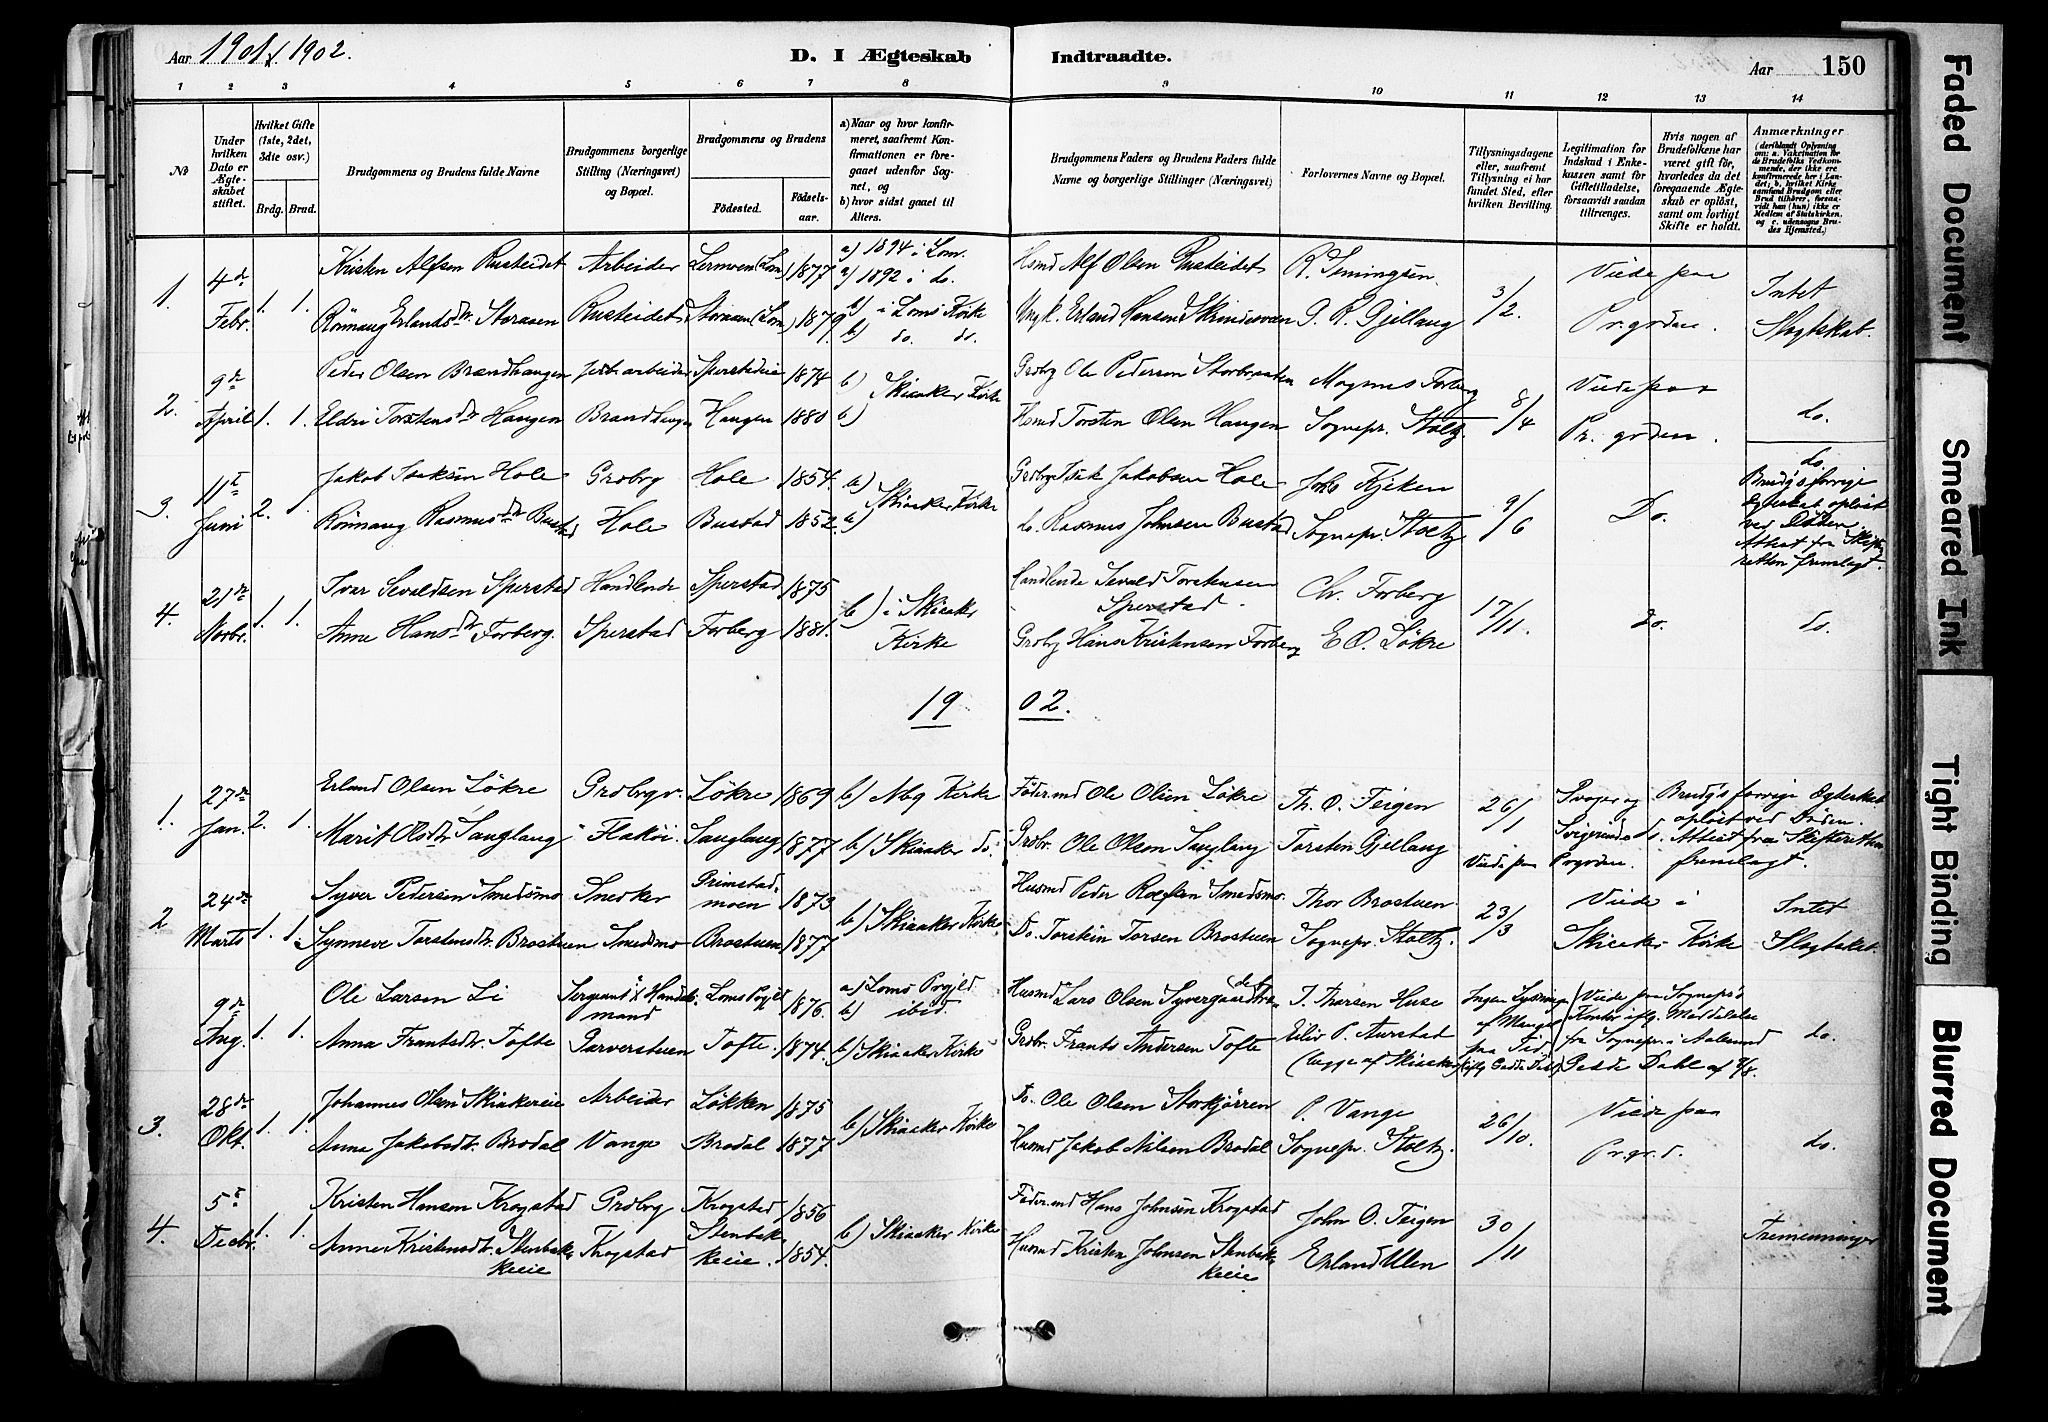 Aar 1901 & 1902.
D. I Ægteskab Indtraadte.
Aar 150
1 2 3 4 5 6 7 8 9 10 11 12 13 14
No
Under hvilken Dato er Ægteskabet stiftet.
Hvilket Gifte (1ste, 2det, 3die osv.)
Brdg. Brud.
Brudgommens og Brudens fulde Navne
Brudgommens borgerlige Stilling (Næringsvei) og Bopæl.
Brudgommens og Brudens
Fødested. Fødselsaar.
a) Naar og hvor konfirmeret, saafremt Konfirmationen er foregaaet udenfor Sognet, og
b) hvor sidst gaaet til Alters.
Brudgommens Faders og Brudens Faders fulde Navne og borgerlige Stillinger (Næringsvei)
Forlovernes Navne og Bopæl.
Tillysningsdagene eller, saafremt Tillysning ei har fundet Sted, efter hvilken Bevilling.
Legitimation for Indskud i Enkekassen samt for Giftetilladelse, forsaavidt saadan tiltrænges.
Hvis nogen af Brudefolkene har været gift før, hvorledes da det foregaaende Ægteskab er opløst, samt om lovligt Skifte er holdt.
Anmærkninger
(deriblandt Oplysning om: a. Vaksination for de Brudefolks Vedkommende, der ikke ere konfirmerede her i Landet; b, hvilket Kirkesamfund Brudgom eller Brud tilhører, forsaavidt han (hun) ikke er Medlem af Statskirken, og c. udensogns Brudes Hjemsted.)
1. 4de Febr. 1. 1.
Kristen Alfsen Rusteidet Arbeider Lermoen (Lom) 1877 a) 1894 i Lom. Hsmd Alf Olsen Rusteidet R. Semingsen. 3/2. Viede paa Intet
Rönnaug Erlandsdtr. Storaasen Rusteidet Storaasen (Lom) 1879 a) 1892 i do. b) i Loms Kirke b) do. do. Ungk. Erland Hansen G. R. Gjellaug Pr.grden. Slegtskab.
2. 9de April 1. 1.
Peder Olsen Brandhaugen Sperstadeie 1874 b) Skiaaker Kirke Grdbrg Ole Pedersen Storbraaten Magnus Forberg 8/4 Viede paa do.
Eldri Torstensdtr. Haugen Brandhaugen Haugen 1880 b) Hsmd Torsten Olsen Haugen Sognepr. Stoltz. Pr. grden.
3. 11te Juni 2. 1.
Jakob Isaksen Hole Grdbrg Hole 1854. b) Skiaaker Kirke Grdbrg Isak Jakobsen Hole Johs Kjeken 9/6 Do. do. Brudgs forrige
Rönnaug Rasmusdtr. Bustad Hole Bustad 1852. b) do. Rasmus Johnsen Bustad Sognepr. Stoltz. Egteskab opløst ved Døden. Attest fra Skifteretten fremlagt.
4. 21de Novbr. 1. 1.
Ivar Sevaldsen Sperstad Handlende Sperstad 1875 b) i Skiaaker Kirke Handlende Sevald Torstensen Sperstad. Chr. Forberg 17/11. Do. do.
Anne Hansdtr. Forberg. Sperstad Forberg 1881. Grdbrg Hans Kristensen Forberg E O. Løkre
19 02.
1. 27de Jan. 2. 1.
Erland Olsen Løkre Grdbrgr. Løkre 1869 b) Kirke Føderaad Ole Olsen Løkre Th. O. Teigen 26/1 Svoger og Brudgs forrige Egteskab
Marit Olsdtr. Sanglaug Flakøi. Sanglaug 1877 b) Skiaaker do. Grdbr. Ole Olsen Sanglaug Torstein Gjellaug Viede paa Prgrden. Svigerinde opløst ved Døden. do. Attest fra Skifteretten fremlagt.
2 24de Marts 1. 1.
Syver Pedersen Smedsmo Snedker Grimstadmoen 1873 b) Skiaaker Kirke. Husmd Peder Rolfsen Smedsmo. Thor Brostuen. 23/3 Viede i Intet
Synneve Torstensdtr. Brostuen Smedsmo Brostuen 1877 Do. Torstein Torsen Brostuen Sognepr. Stoltz. Skiaaker Kirke Slegtskab.
9de Aug. 1. 1.
Ole Larsen Li Sergeant & Handelsmand Loms Prgjld 1876. a) Loms Prgjld b) ibid. Husmd Lars Olsen T. Thorsen Huse Ingen Lysning af Mangel paa Tid Viede paa Sognepr's Kontor iflg. Meddelelse
Anna Frantsdtr. Tofte Garverstuen Tofte. 1874. b) Skiaaker Kirke Grdbr. Frants Andersen Tofte Eiliv P. Aurstad (begge af Skiaaker) fra Sognepr. i Aalesund Dahl af 9/8. do.
3. 28de Okt. 1. 1.
Johannes Olsen Skiakereie Arbeider Løkken 1875 b) Skiaaker Kirke Do. Ole Olsen Storkjørren P. Vange 26/10. Viede paa
Anna Jakobsdtr. Brodal Vange Brodal 1877 Husmd Jakob Nilsen Brodal Sognepr. Stoltz. Pr.gr.d. do.
4. 5te Decbr. 1. 1.
Kristen Hansen Krogstad Grdbrg Krogstad 1856 b) Skiaaker Kirke Føderaad Hans Johnsen Krogstad John O. Teigen 30/11 Tremenninger
Anne Kristensdtr. Stenbakkeeie Krogstad Stenbakkeeie. 1854. Husmd Kristen Johnsen Stenbakkeeie Erland Ulen
Faded Document
Smeared Ink
Tight Binding
Blurred Document